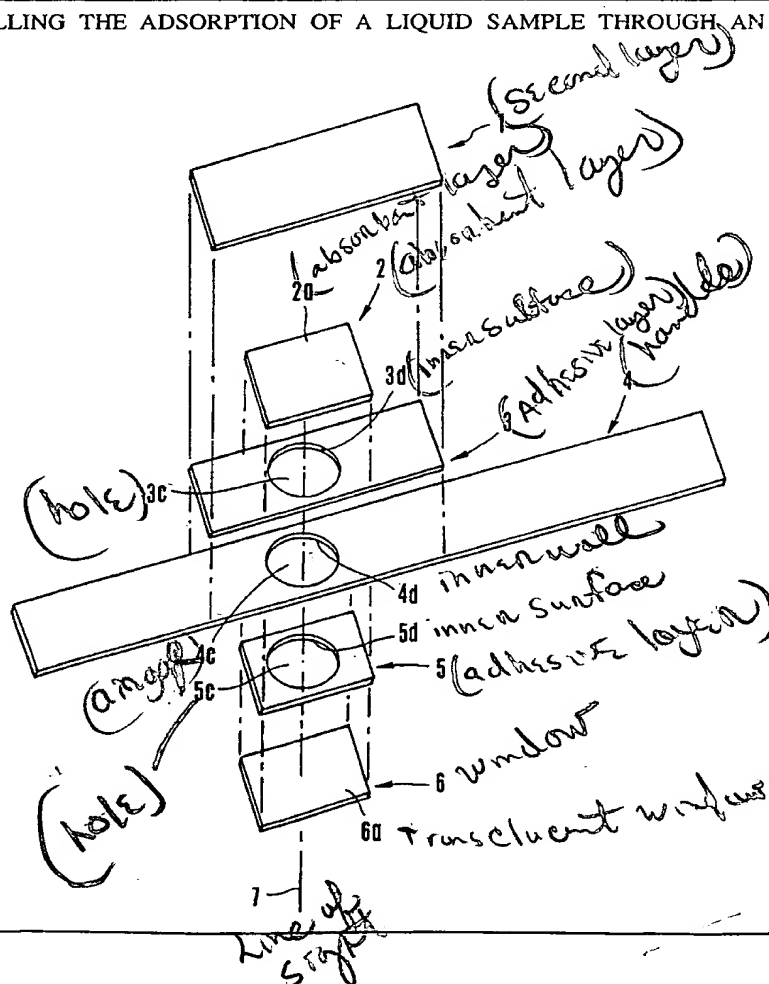 LLING THE ADSORPTION OF A LIQUID SAMPLE THROUGH AN
(second layer)
1
(absorbent layer)
2a
2 (absorbent layer)
3d (inner surface)
3 (Adhesive layer)
4 (handle)
(hole) 3c
4d inner wall
5d inner surface
4c
5 (adhesive layer)
5c
(hole)
6 window
6a Translucent window
7
Line of
sight